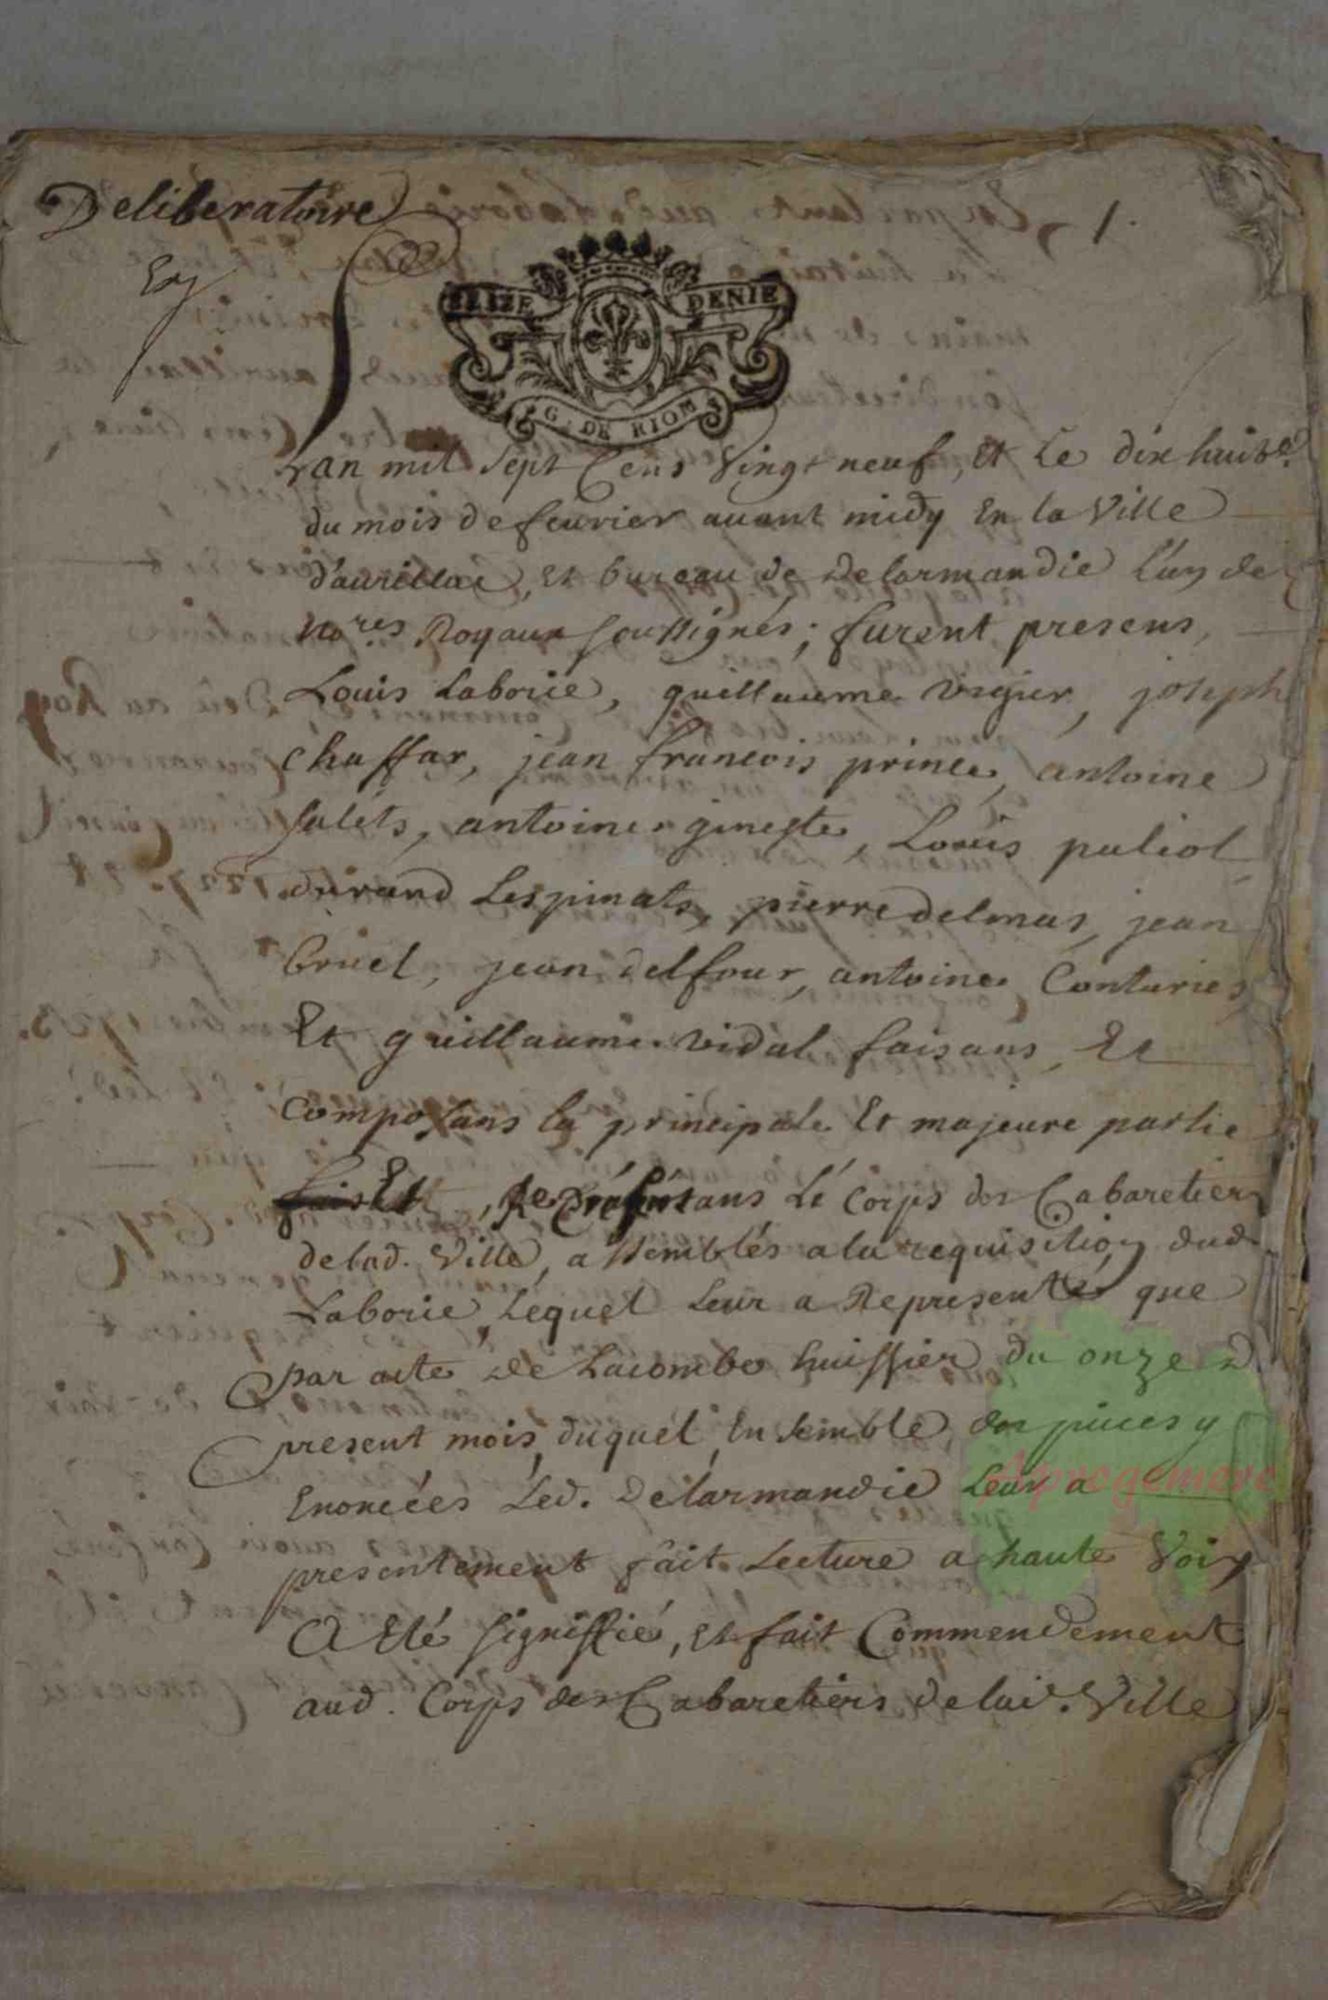 Deliberatoire
1.
Exp
SEIZE DENIE
G. DE RIOM
Lan mil sept Cens Vingt neuf, Et Le dix huite.
du mois de feurier auant midy En la Ville
d'aurillac, Et bureau de Delarmandie L'un de
No.res Royaux soussignés; furent presens,
Louis Laborie, guillaume vigier, joseph
chaffar, jean francois prince, antoine
salets, antoine gineste, Louis paliol
durand Lespinats, pierre delmas, jean
bruel, jean delfour, antoine Conturies
Et guillaume vidal faisans, Et
composans la principale Et majeure partie
Et, Representans Le Corps des Cabaretiers
delad. Ville, assemblés a la requisition dud.
Laborie, Lequel Leur a Representé que
par acte de Lacombe huissier du onze d.
present mois, duquel, Ensemble des pieces y
Enoncées Led. Delarmandie Leur a
Aprogemere
presentement fait Lecture a haute Voix
A Eté signiffié, Et fait Commendement
aud. Corps des Cabaretiers delad. Ville